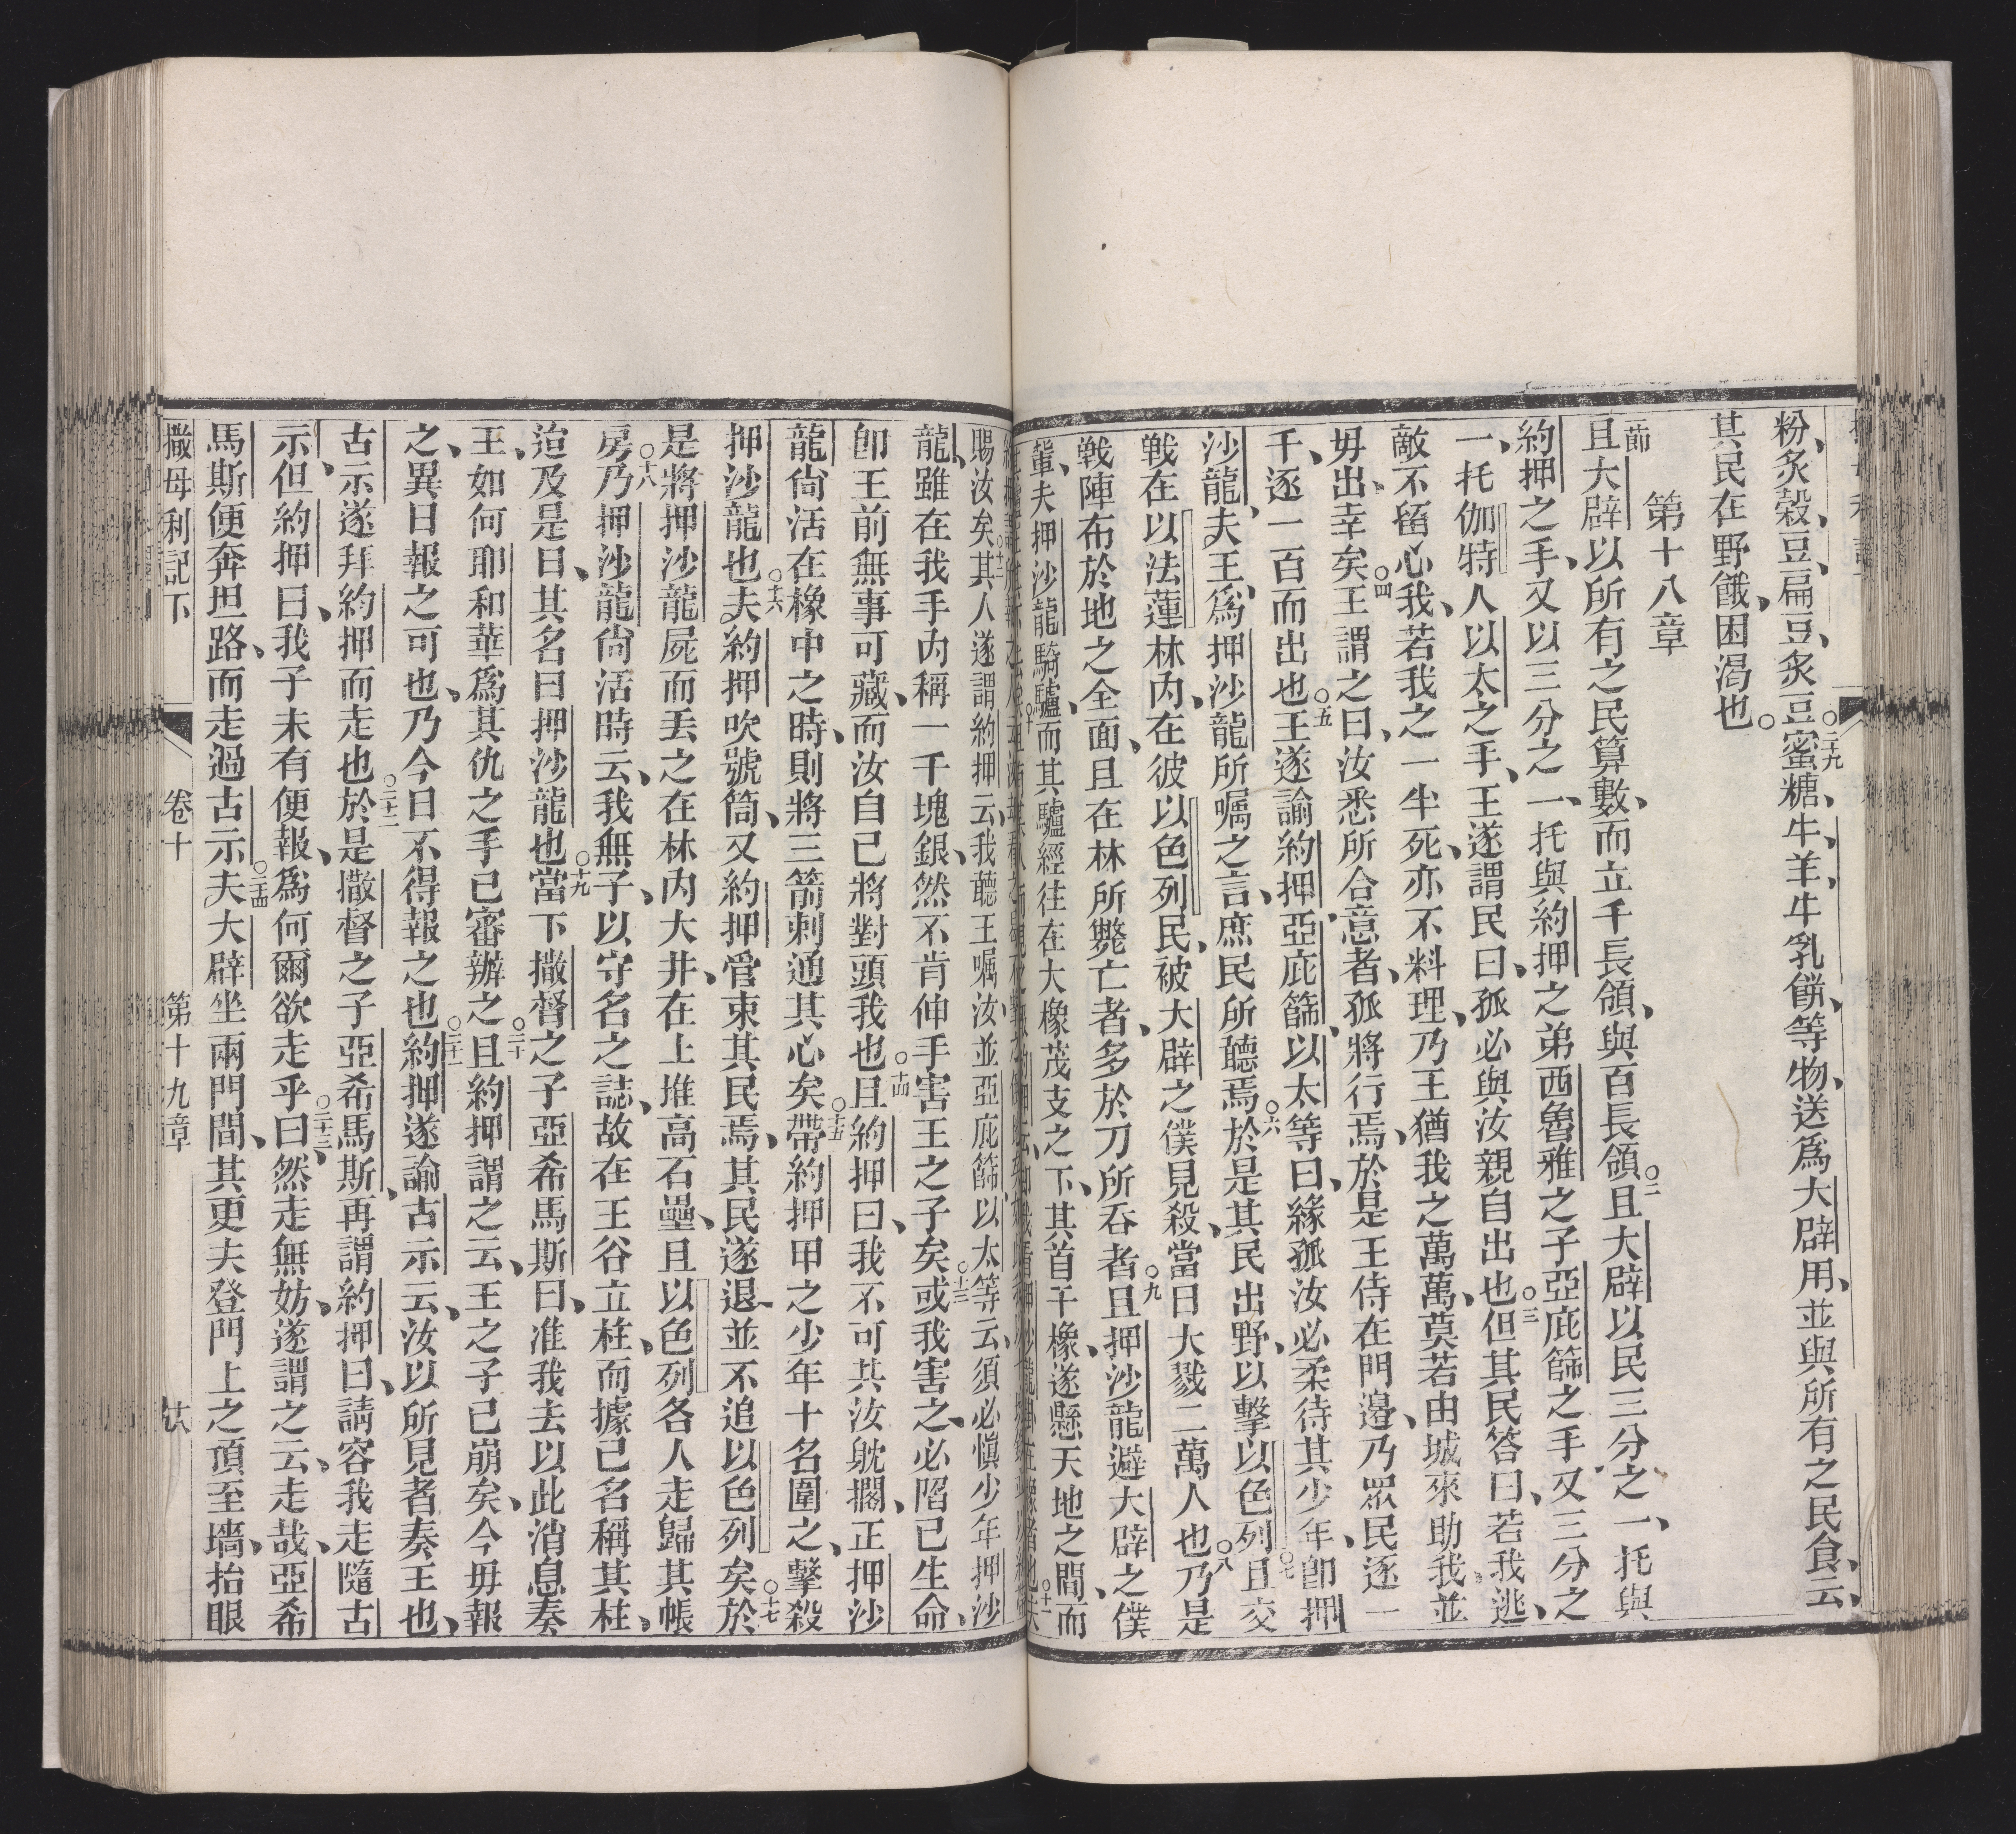 粉、炙穀、豆、扁豆、炙豆○二九蜜糖、牛、羊、牛乳餅、等物、送爲大辟用、並與所有之民食、云、
其民在野餓、困渴也○
第十八章
節
且大辟以所有之民算數、而立千長領、與百長領○二且大辟以民三分之一、托與
約押之手、又以三分之一、托與約押之弟西魯雅之子亞庇篩之手又三分之
一、托伽特人以太之手、王遂謂民曰、孤必與汝親自出也○三但其民答曰、若我逃、
敵不留心我、若我之一半死、亦不料理、乃王猶我之萬萬、莫若由城來助我、並
毋出、幸矣○四王謂之曰、汝悉所合意者、孤將行焉、於是王侍在門邊、乃眾民逐一
千、逐一百而出也○五王遂諭約押、亞庇篩、以太等曰、緣孤汝必柔待其少年、卽押
沙龍、夫王、爲押沙龍所囑之言、庶民所聽焉○六於是其民出野、以擊以色列○七且交
戰在以法蓮林內、在彼以色列民、被大辟之僕見殺、當日大戮二萬人也○八乃是
戰陣布於地之全面、且在林所斃亡者、多於刀所吞者○九且押沙龍避大辟之僕
輩、夫押沙龍騎驢、而其驢經往在大橡茂支之下、其首干橡、遂懸天地之間、而
賜汝矣○十二其人遂謂約押云、我聽王囑汝、並亞庇篩、以太等云、須必愼少年押沙
龍、雖在我手內稱一千塊銀、然不肯伸手害王之子矣○十三或我害之、必陷己生命、
卽王前無事可藏、而汝自己將對頭我也○十四且約押曰、我不可共汝躭擱、正押沙
龍尙活在橡中之時、則將三箭刺通其心矣○十五帶約押甲之少年十名圍之、擊殺
押沙龍也○十六夫約押吹號筒、又約押管束其民焉、其民遂退、並不追以色列矣○十七於
是將押沙龍屍而丟之在林內大井、在上堆高石壘、且以色列各人走歸其帳
房○十八乃押沙龍尙活時云、我無子、以守名之誌、故在王谷立柱、而據己名稱其柱、
迨及是日、其名曰押沙龍也○十九當下撒督之子亞希馬斯曰、准我去以此消息奏
王、如何耶和華爲其仇之手已審辦之○二十且約押謂之云、王之子已崩矣、今毋報
之、異日報之可也、乃今日不得報之也○二十一約押遂諭古示云、汝以所見者奏王也、
古示遂拜約押而走也○二十二於是撒督之子亞希馬斯、再謂約押曰、請容我走隨古
示、但約押曰、我子未有便報、爲何爾欲走乎○二十三曰、然走無妨、遂謂之云、走哉、亞希
馬斯便奔坦路、而走過古示○二十四夫大辟坐兩門間、其更夫登門上之頂至墻、抬眼
撒母利記下 卷十 第十九章 廿八